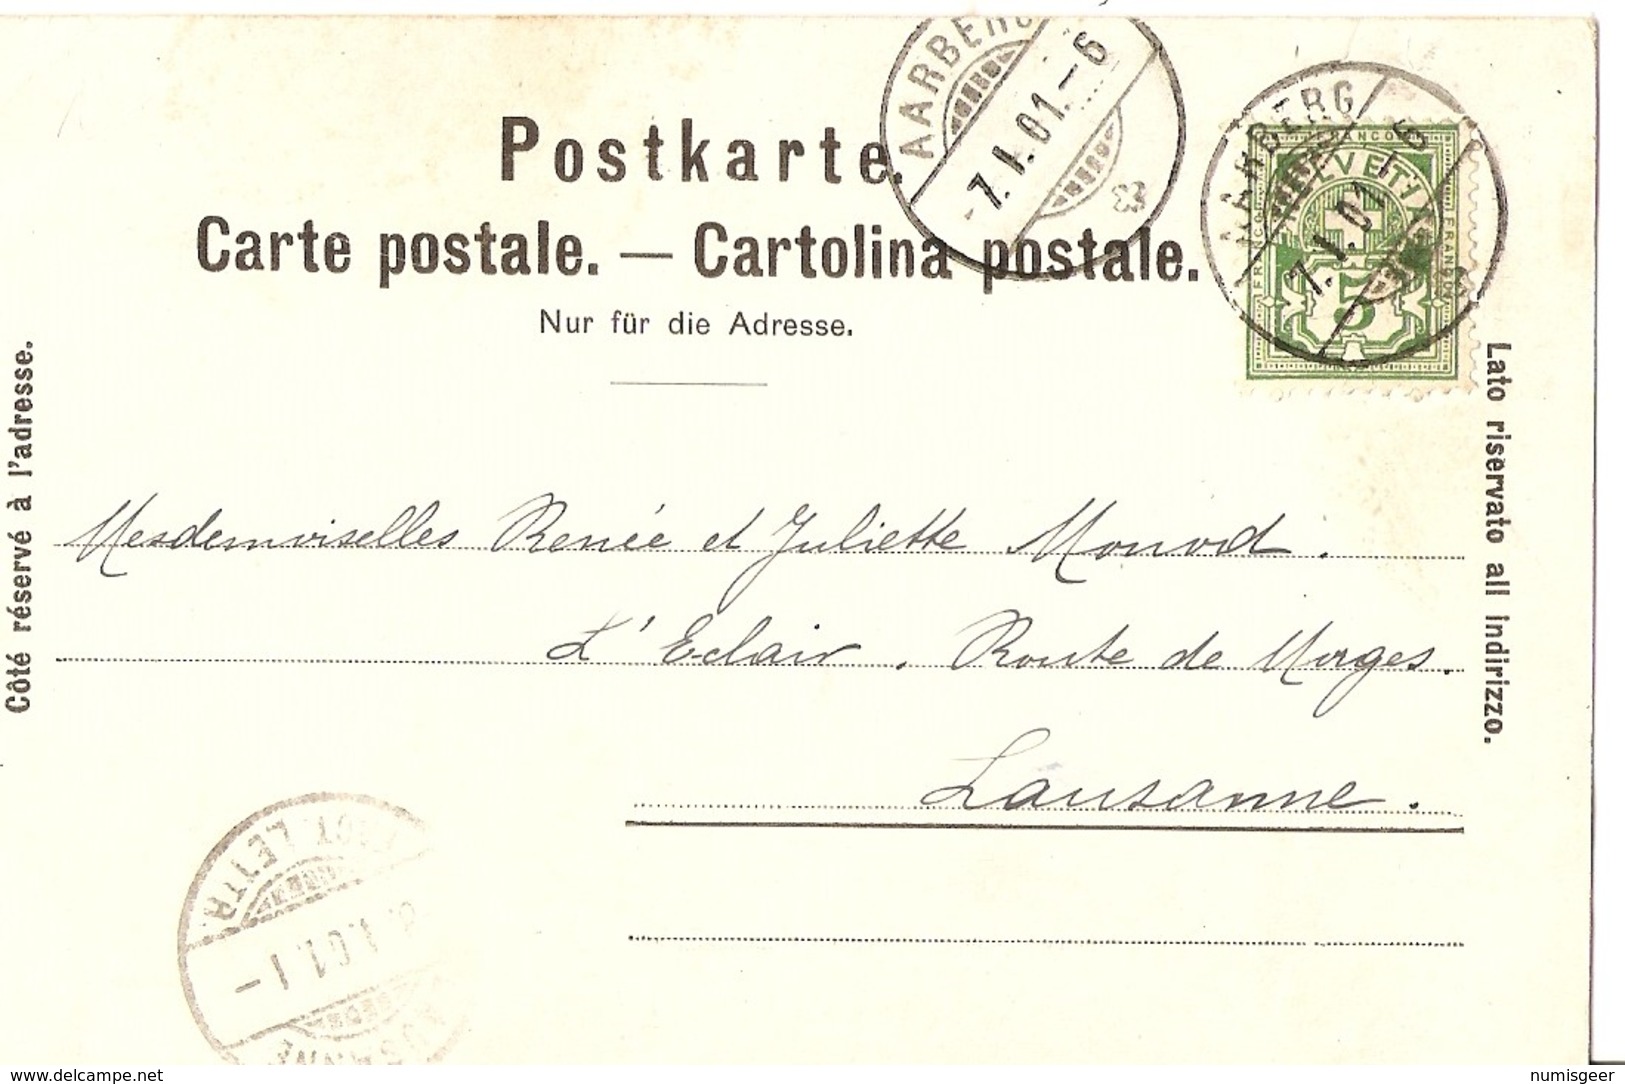 AARBERG
7.I.01.-6
AARBERG
7.I.01.-6
FRANCO
HELVETIA
FRANCO
FRANCO
5
Postkarte.
Carte postale. — Cartolina postale.
Nur für die Adresse.
Côté réservé à l'adresse.
Lato riservato all indirizzo.
Mesdemoiselles Renée et Juliette Monod.
L'Eclair. Route de Morges.
Lausanne.
LETTR.
I.01.I-
delcampe.net
numisgeer